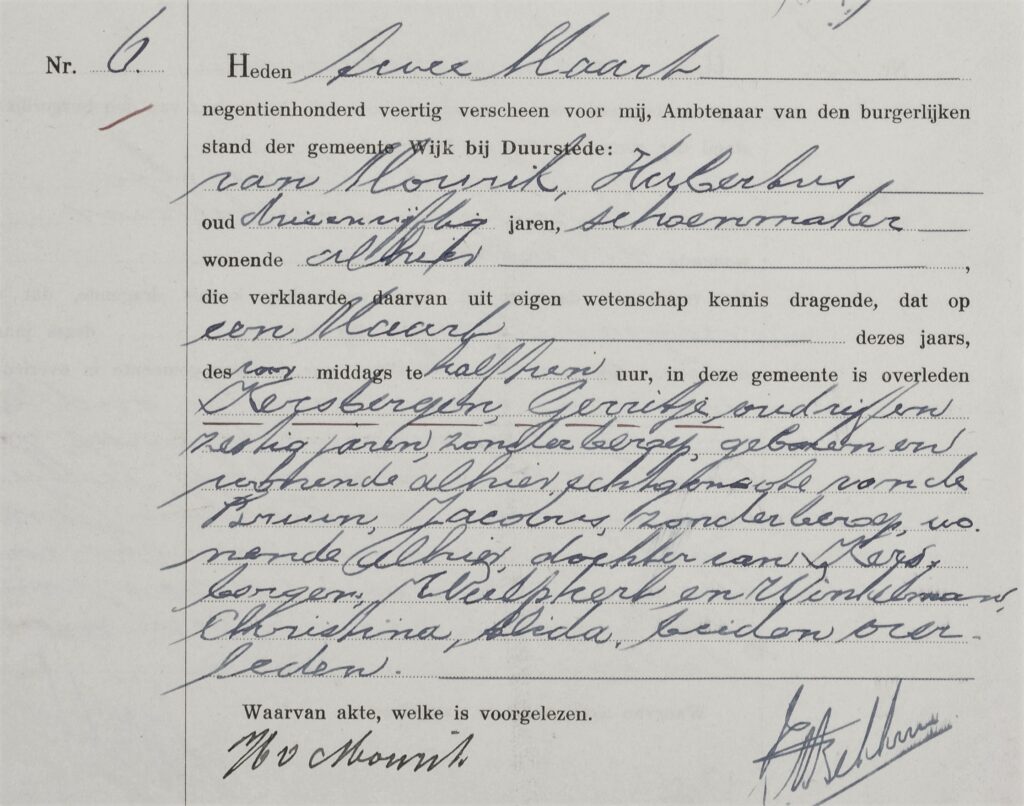 Nr. 6.
Heden twee Maart
negentienhonderd veertig verscheen voor mij, Ambtenaar van den burgerlijken
stand der gemeente Wijk bij Duurstede:
van Mourik, Hubertus
oud drieenvijftig jaren, schoenmaker
wonende alhier ,
die verklaarde, daarvan uit eigen wetenschap kennis dragende, dat op
een Maart dezes jaars,
des voor middags te half tien uur, in deze gemeente is overleden
Kersbergen, Gerritje, oud vijfen
zestig jaren, zonder beroep, geboren en
wonende alhier, echtgenoote van de
Bruin, Jacobus, zonder beroep, wo-
nende alhier, dochter van Kers-
bergen, Wulphert en Winkelman,
Christina, Alida, beiden over-
leden.
Waarvan akte, welke is voorgelezen.
H v Mourik